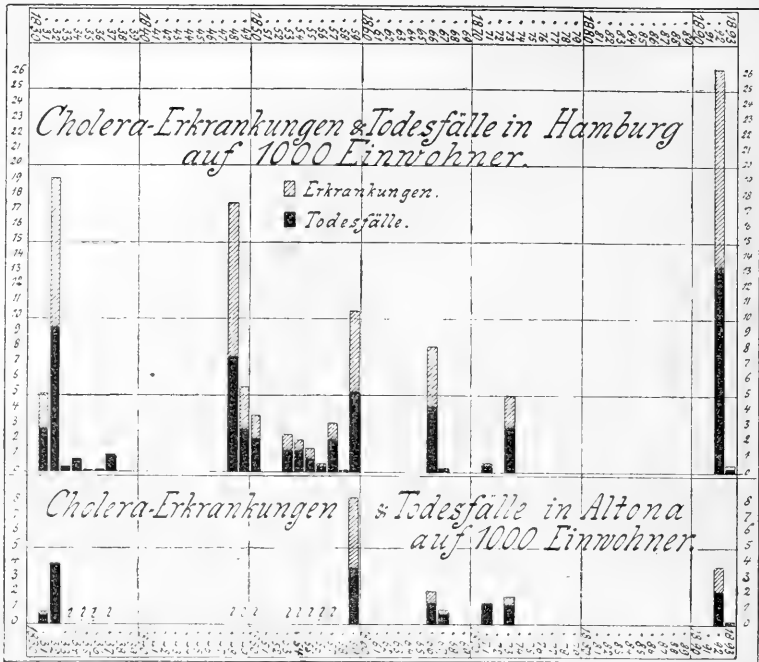 1830 31 32 33 34 35 36 37 38 39 1840 41 42 43 44 45 46 47 48 49 1850 51 52 53 54 55 56 57 58 59 1860 61 62 63 64 65 66 67 68 69 1870 71 72 73 74 75 76 77 78 79 1880 81 82 83 84 85 86 87 88 89 1890 91 92 1893
26
25
24
23
22
21
20
19
18
17
16
15
14
13
12
11
10
9
8
7
6
5
4
3
2
1
0
Cholera-Erkrankungen & Todesfälle in Hamburg
auf 1000 Einwohner.
Erkrankungen.
Todesfälle.
26
25
24
23
22
21
20
19
18
17
16
15
14
13
12
11
10
9
8
7
6
5
4
3
2
1
0
8
7
6
5
4
3
2
1
0
Cholera-Erkrankungen & Todesfälle in Altona
auf 1000 Einwohner.
? ? ? ? ? ? ? ? ? ? ? ?
8
7
6
5
4
3
2
1
0